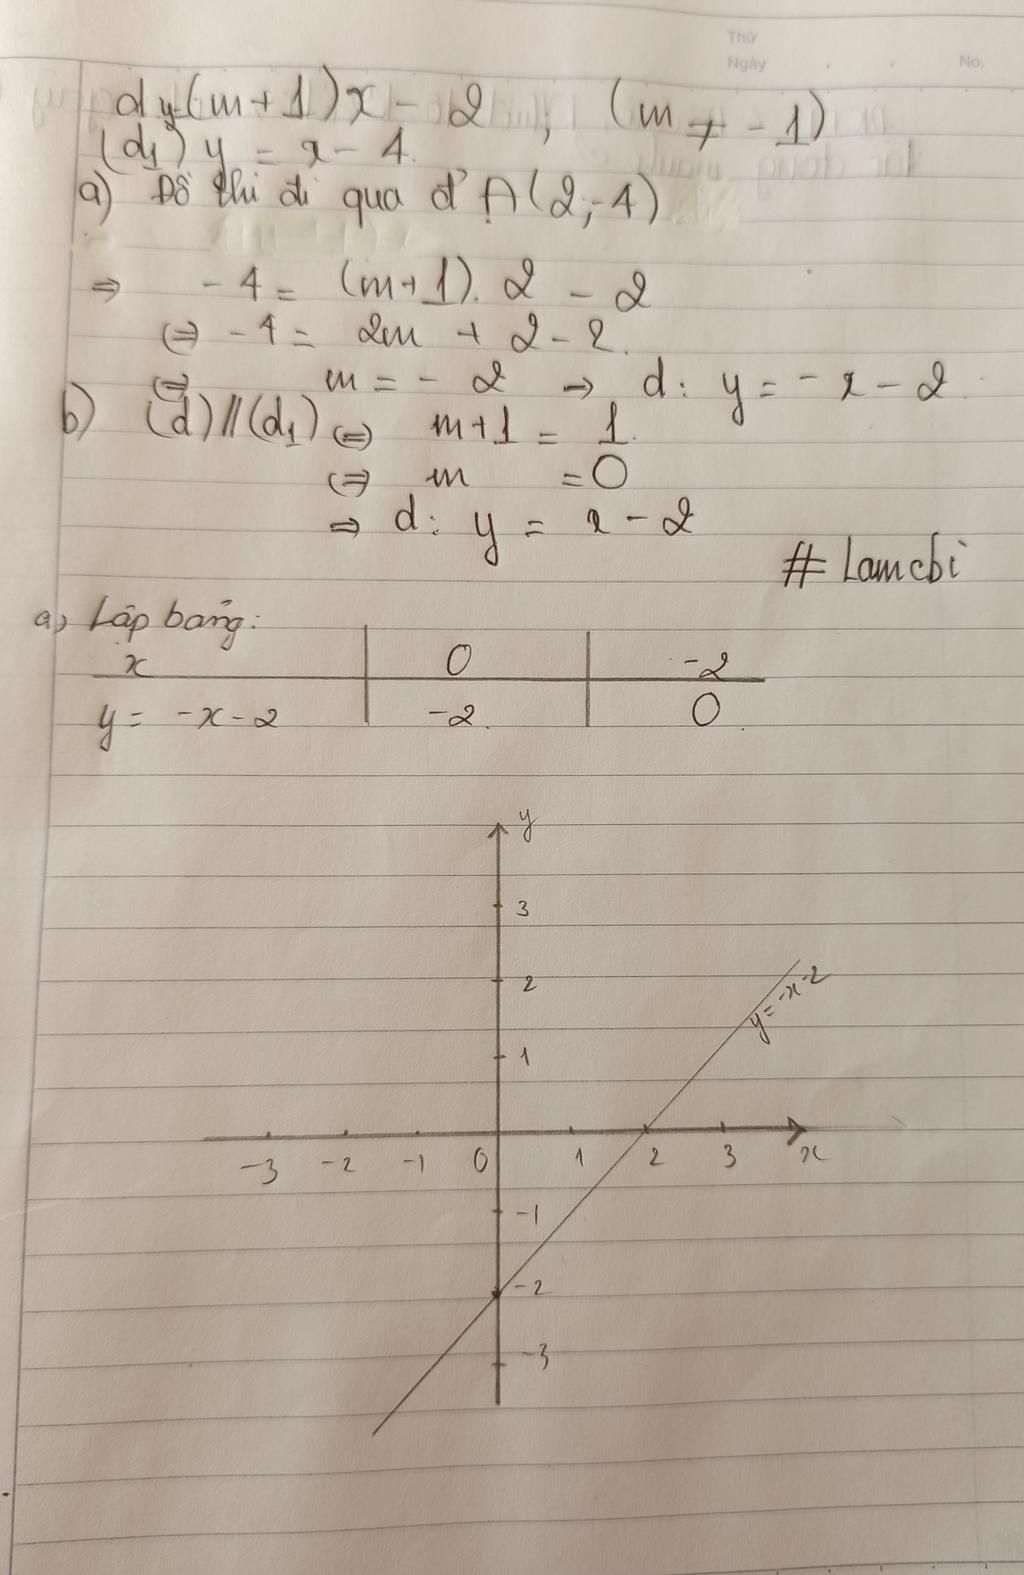 Thứ
Ngày No.
d y=(m+1)x - 2 , (m ≠ -1)
(d₁) y = x - 4.
a) Đồ thị đi qua đ' A(2;-4)
⇒ -4 = (m+1). 2 - 2
⇔ -4 = 2m + 2 - 2.
⇔ m = - 2 → d: y = - x - 2
b) (d)//(d₁) ⇔ m+1 = 1
⇔ m = 0
⇒ d: y = x - 2
# Lamcbi
a, Lập bảng:
x 0 -2
y = -x-2 -2 0
y
3
2
y = -x-2
1
-3 -2 -1 0 1 2 3 x
-1
-2
-3